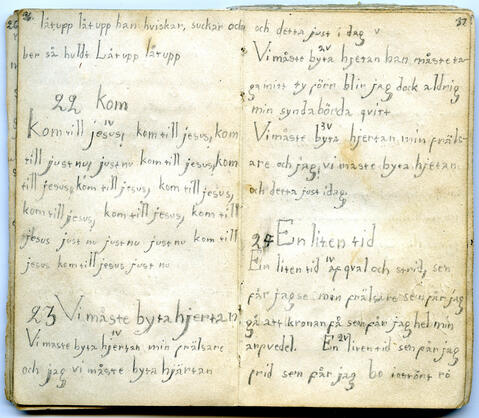 36
låtupp låtupp han hviskar, suckar och
ber så huldt Låtupp låtupp
22 Kom
1V
Kom till jesus, kom till jesus, kom
till just nu, just nu kom till jesus,
till jesus, kom till jesus, kom till jesus,
kom till jesus, kom till jesus, kom till
jesus just nu just nu just nu kom till
jesus kom till jesus just nu
23 Vi måste byta hjertan
1V
Vi måste byta hjertan min prälsare
och jag vi måste byta hjärtan
37
och detta just i dag v
2V
Vi måste byta hjetan han måste ta
ga mitt ty förn blir jag dock aldrig
min syndabörda qvitt
3V
Vi måste byta hjertan, min präls-
are och jag, vi måste byta hjetan
och detta just idag,
24 En liten tid
1V
En liten tid af qval och strid, sen
får jag se min prälsare sen får jag
gå att kronan få sen får jag hel min
arpvedel. En liten tid sen får jag
2V
frid sen får jag bo